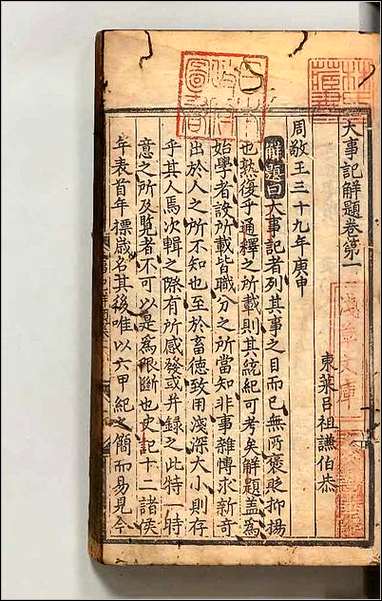 大事記解題卷第一
東萊呂祖謙伯恭
周敬王三十九年庚申
解題曰大事記者列其事之目而已無所褒貶抑揚
也熟復乎通釋之所載則其統紀可考矣解題蓋爲
始學者設所載皆職分之所當知非事雜博求新奇
出於人之所不知也至於畜德致用淺深大小則存
乎其人焉次輯之際有所感發或并錄之此特一時
意之所及覽者不可以是爲限斷也史記十二諸侯
年表首年摽歲名其後唯以六甲紀之簡而易見今
淺草文庫
日本
政府
圖書